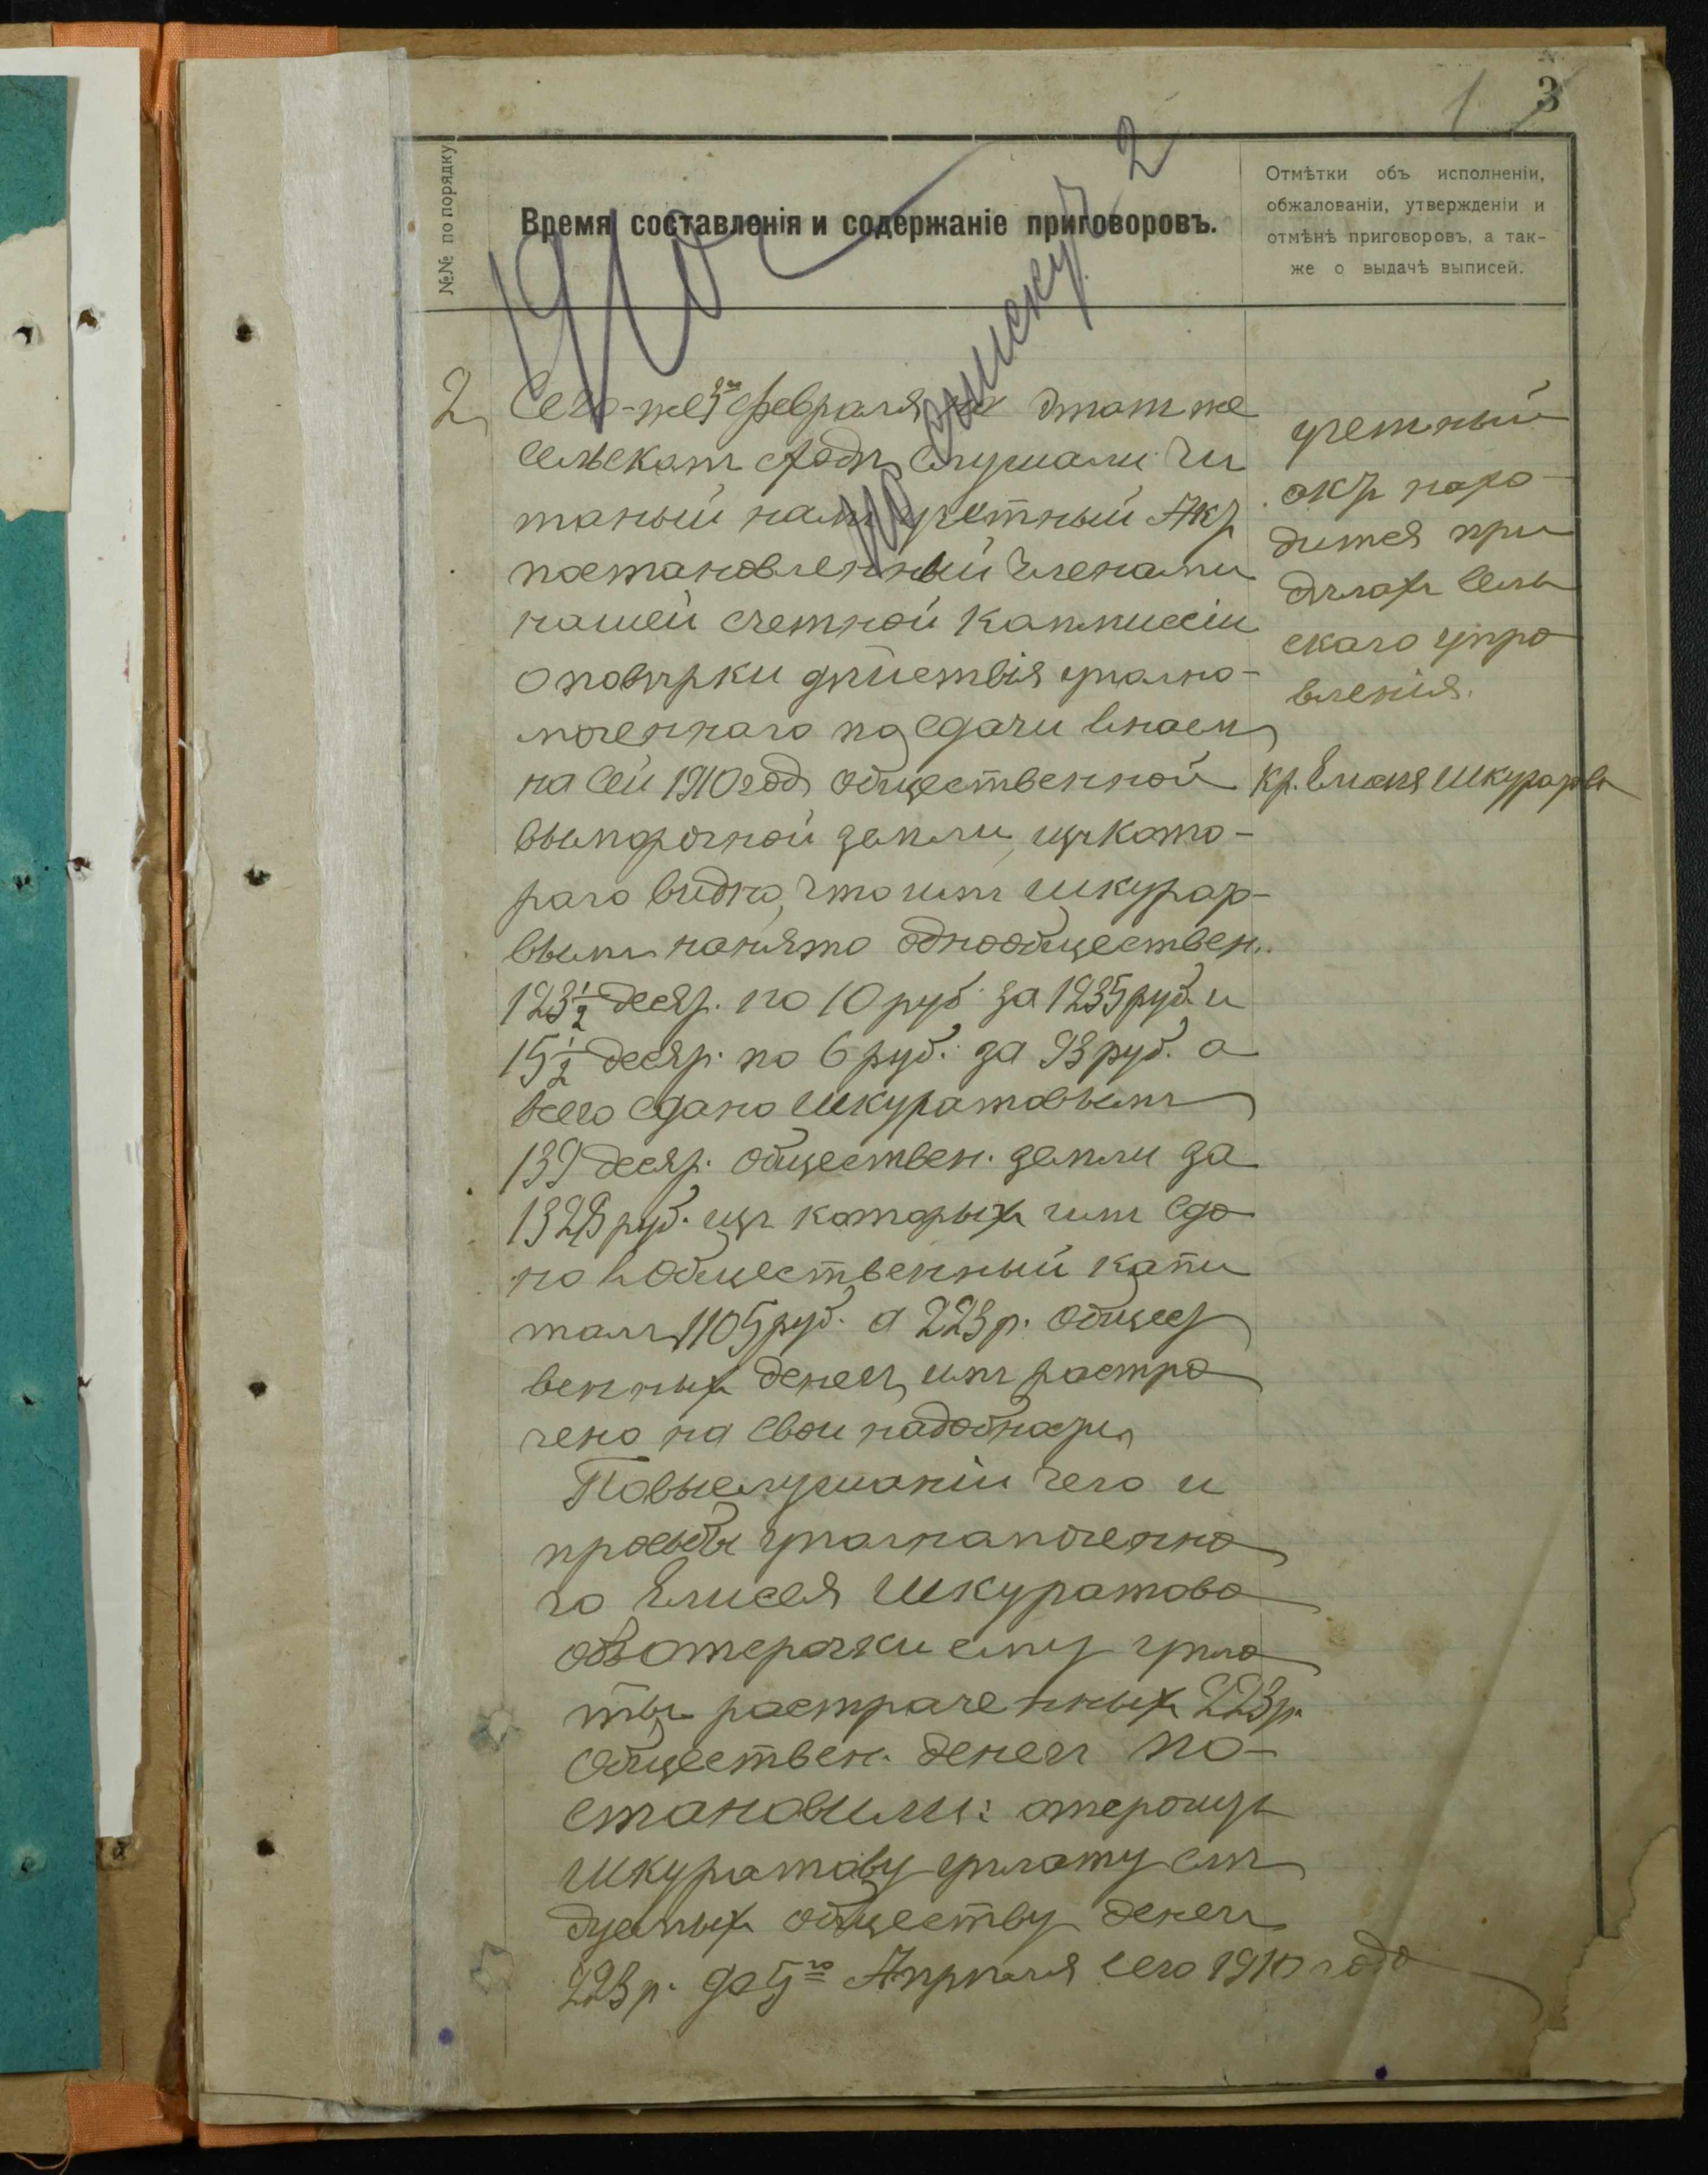 1 3
№№ по порядку
Время составленія и содержаніе приговоровъ.
Отмѣтки объ исполненіи,
обжалованіи, утвержденіи и
отмѣнѣ приговоровъ, а так-
же о выдачѣ выписей.
1910
по списку 2
2 Сего-же 5го февраля на этомъ же
сельскомъ сходѣ слушали чи
таный намъ учетный Актъ
постановленный членами
нашей счетной коммиссіи
о повѣрки дѣйствія уполно-
моченнаго по сдачи внаемъ
на сей 1910 годъ общественной
выморочной земли, изъ кото-
раго видно, что имъ Шкурато-
вымъ нанято однообществен.
123 1/2 десят. по 10 руб. за 1235 руб. и
15 1/2 десят. по 6 руб. за 93 руб. а
всего сдано Шкуратовымъ
139 десят. обществен. земли за
1328 руб. изъ которыхъ имъ сда
но въ общественный капи
талъ 1105 руб. а 223 р. общест
венныхъ денегъ имъ растра
чено на свои надобности
По выслушаніи чего и
просьбы уполномоченна
го Елисея Шкуратова
объ отсрочки ему упла
ты растраченныхъ 223 р.
обществен. денегъ по-
становили: отсрочить
Шкуратову уплату слѣ
дуемыхъ обществу денегъ
223 р. до 5го Апрѣля сего 1910 года
учетный
актъ нахо-
дится при
дѣлахъ Сель
скаго упра
вленія.
Кр. Елисея Шкуратова